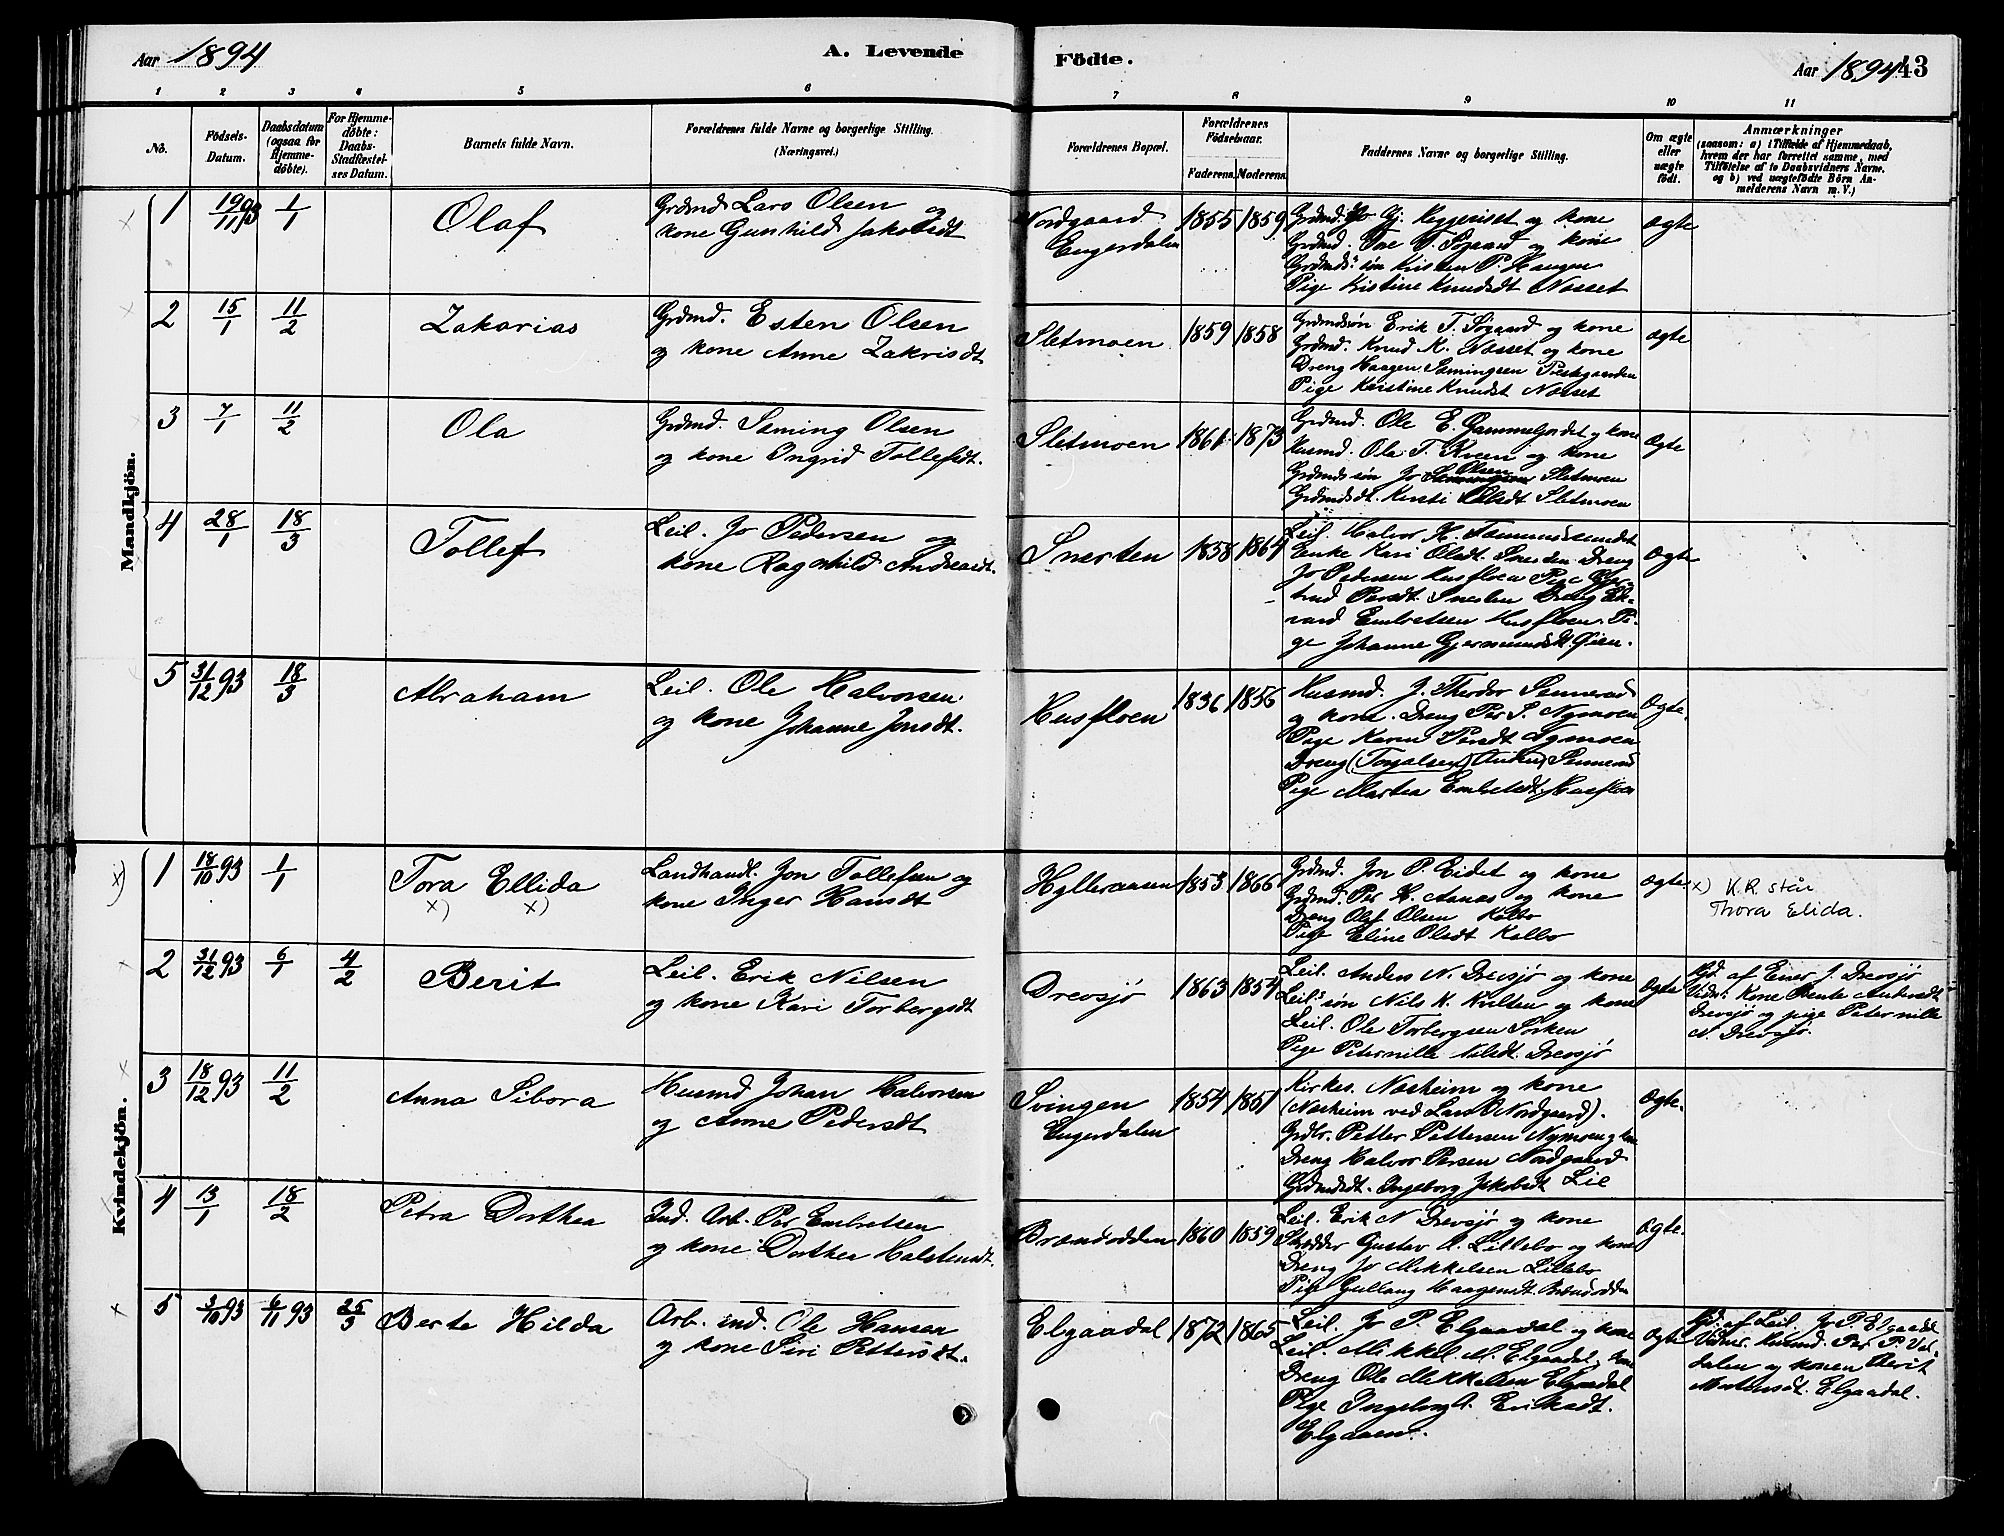 Aar 1894 A. Levende Födte. Aar 1894 43
1 2 3 4 5 6 7 8 9 10 11
No. Födsels-Datum. Daabsdatum (ogsaa for Hjemme-döbte). For Hjemme-döbte: Daabs-Stadfæstel-ses Datum. Barnets fulde Navn. Forældrenes fulde Navne og borgerlige Stilling. (Næringsvei.) Forældrenes Bopæl. Forældrenes Födselsaar. Faderens. Moderens. Faddernes Navne og borgerlige Stilling. Om ægte eller uægte födt. Anmærkninger (saasom: a) i Tilfælde af Hjemmedaab, hvem der har forrettet samme, med Tilföielse af to Daabsvidners Navne, og b) ved uægtefödte Börn An-melderens Navn m. V.)
Mandkjön.
1 19/11 93 1/1 Olaf Grdmd. Lars Olsen og Nordgaard 1855 1859 ægte
kone Gunhild Jakobsdt Engerdalen
Grdmd. Jo Gj. Heggeriset og kone
Grdmd. Tore T. Søgaard og kone
Grdmds. søn Kristen P. Haugen
Pige Kristine Knudsdt Nosset
2 15/1 11/2 Zakarias Grdmd. Esten Olsen Sletmoen 1859 1858 ægte
og kone Anne Zakrisdt
Grdmdsøn Erik T. Søgaard og kone
Grdmd. Knud K. Nosset og kone
Dreng Haagen Samingsen Prestgaarden
Pige Kristine Knudst Nosset
3 7/1 11/2 Ola Grdmd. Saming Olsen Sletmoen 1861 1873 ægte
og kone Ingrid Tollefsdt.
Grdmd. Ole E. Gammeljordet og kone
Husmd. Ole T. Kveen og kone
Grdmds søn Jo Olsen Sletmoen
Grdmdsdt. Kersti Olsdt Sletmoen
4 28/1 18/3 Tollef Leil. Jo Pedersen og Snerten 1858 1864 ægte
kone Ragnhild Andreasdt.
Leil. Halvor H. Sømmundsundet
Enke Kari Olsdt. Snerten Dreng
Jo Pedersen Husfloen Pige Gjer-
trud Persdt. Snerten Dreng Ed-
vard Embretsen Husfloen. Pi-
ge Johanne Gjermundsdt. Øien.
5 31/12 93 18/3 Abraham Leil. Ole Halvorsen Husfloen 1836 1856 Ægte.
og kone Johanne Jonsdt.
Husmd. J. Theodor Sennerud
og kone. Dreng Per S. Nymoen
Pige Karen Persdt Nymoen
Dreng (Torvalsen) Anton Sennerud
Pige Martea Embretsdt. Husfloen
Kvindekjön.
x) 1 18/10 93 1/1 Tora Ellida Landhandl. Jon Tollefsen og Hylleraasen 1853 1866 ægte x) K.R. står
x) x) kone Inger Hansdt Thora Elida.
Grdmd. Jon P. Eidet og kone
Grdmd. Per H. Aanas og kone
Dreng Olaf Olsen Kolbo
Pige Eline Olsdt Kolbo
2 31/12 93 6/1 4/2 Berit Leil. Erik Nilsen Drevsjø 1863 1854 ægte
og kone Kari Torbergsdt
Leil. Anders N. Drevsjø og kone
Leil. søn Nils K. Kvilten og kone
Leil. Ole Torbergsen Sorken
Pige Peternille Nilsdt. Drevsjø
Hjd. af Einer J. Drevsjø
Vidner: Kone Bente Andersdt
Drevsjø og pige Peternille
N. Drevsjø.
3 18/12 93 11/2 Anna Sibora Husmd Johan Halvorsen Svingen 1854 1851 ægte.
og Anne Pedersdt Engerdalen
Kirkes. Nasheim og kone
(Nasheim ved Lars O Nordgaard).
Grdbr. Petter Pettersen Nymoen og kone
Dreng Halvor Persen Nordgaard
Grdmdsdt. Ingeborg Jakobsdt Lie
4 13/1 18/2 Petra Dorthea Ind. Arb. Per Embretsen Brændodden 1860 1859 ægte.
og kone Dorthea Halstensdt.
Leil. Erik N Drevsjø og kone
Skrædder Gustav A. Lillebo og kone
Dreng Jo Mikkelsen Lillebo
Pige Gullaug Haagensdt Brændodden
5 3/10 93 6/11 93 25/3 Berte Hilda Arb. ind. Ole Hansen Elgaadal 1872 1865 ægte
og kone Siri Pettersdt.
Leil. Jo P. Elgaadal og kone
Leil. Mikkel M. Elgaadal, kone
Dreng Ole Mikkelsen Elgaadal
Pige Ingeborg Eriksdt.
Elgaaen.
Hjd. af Leil. Jo P. Elgaadal
Vidner. Husmd. Per P. Val-
dalen og konen Berit
Mortensdt. Elgaadal.